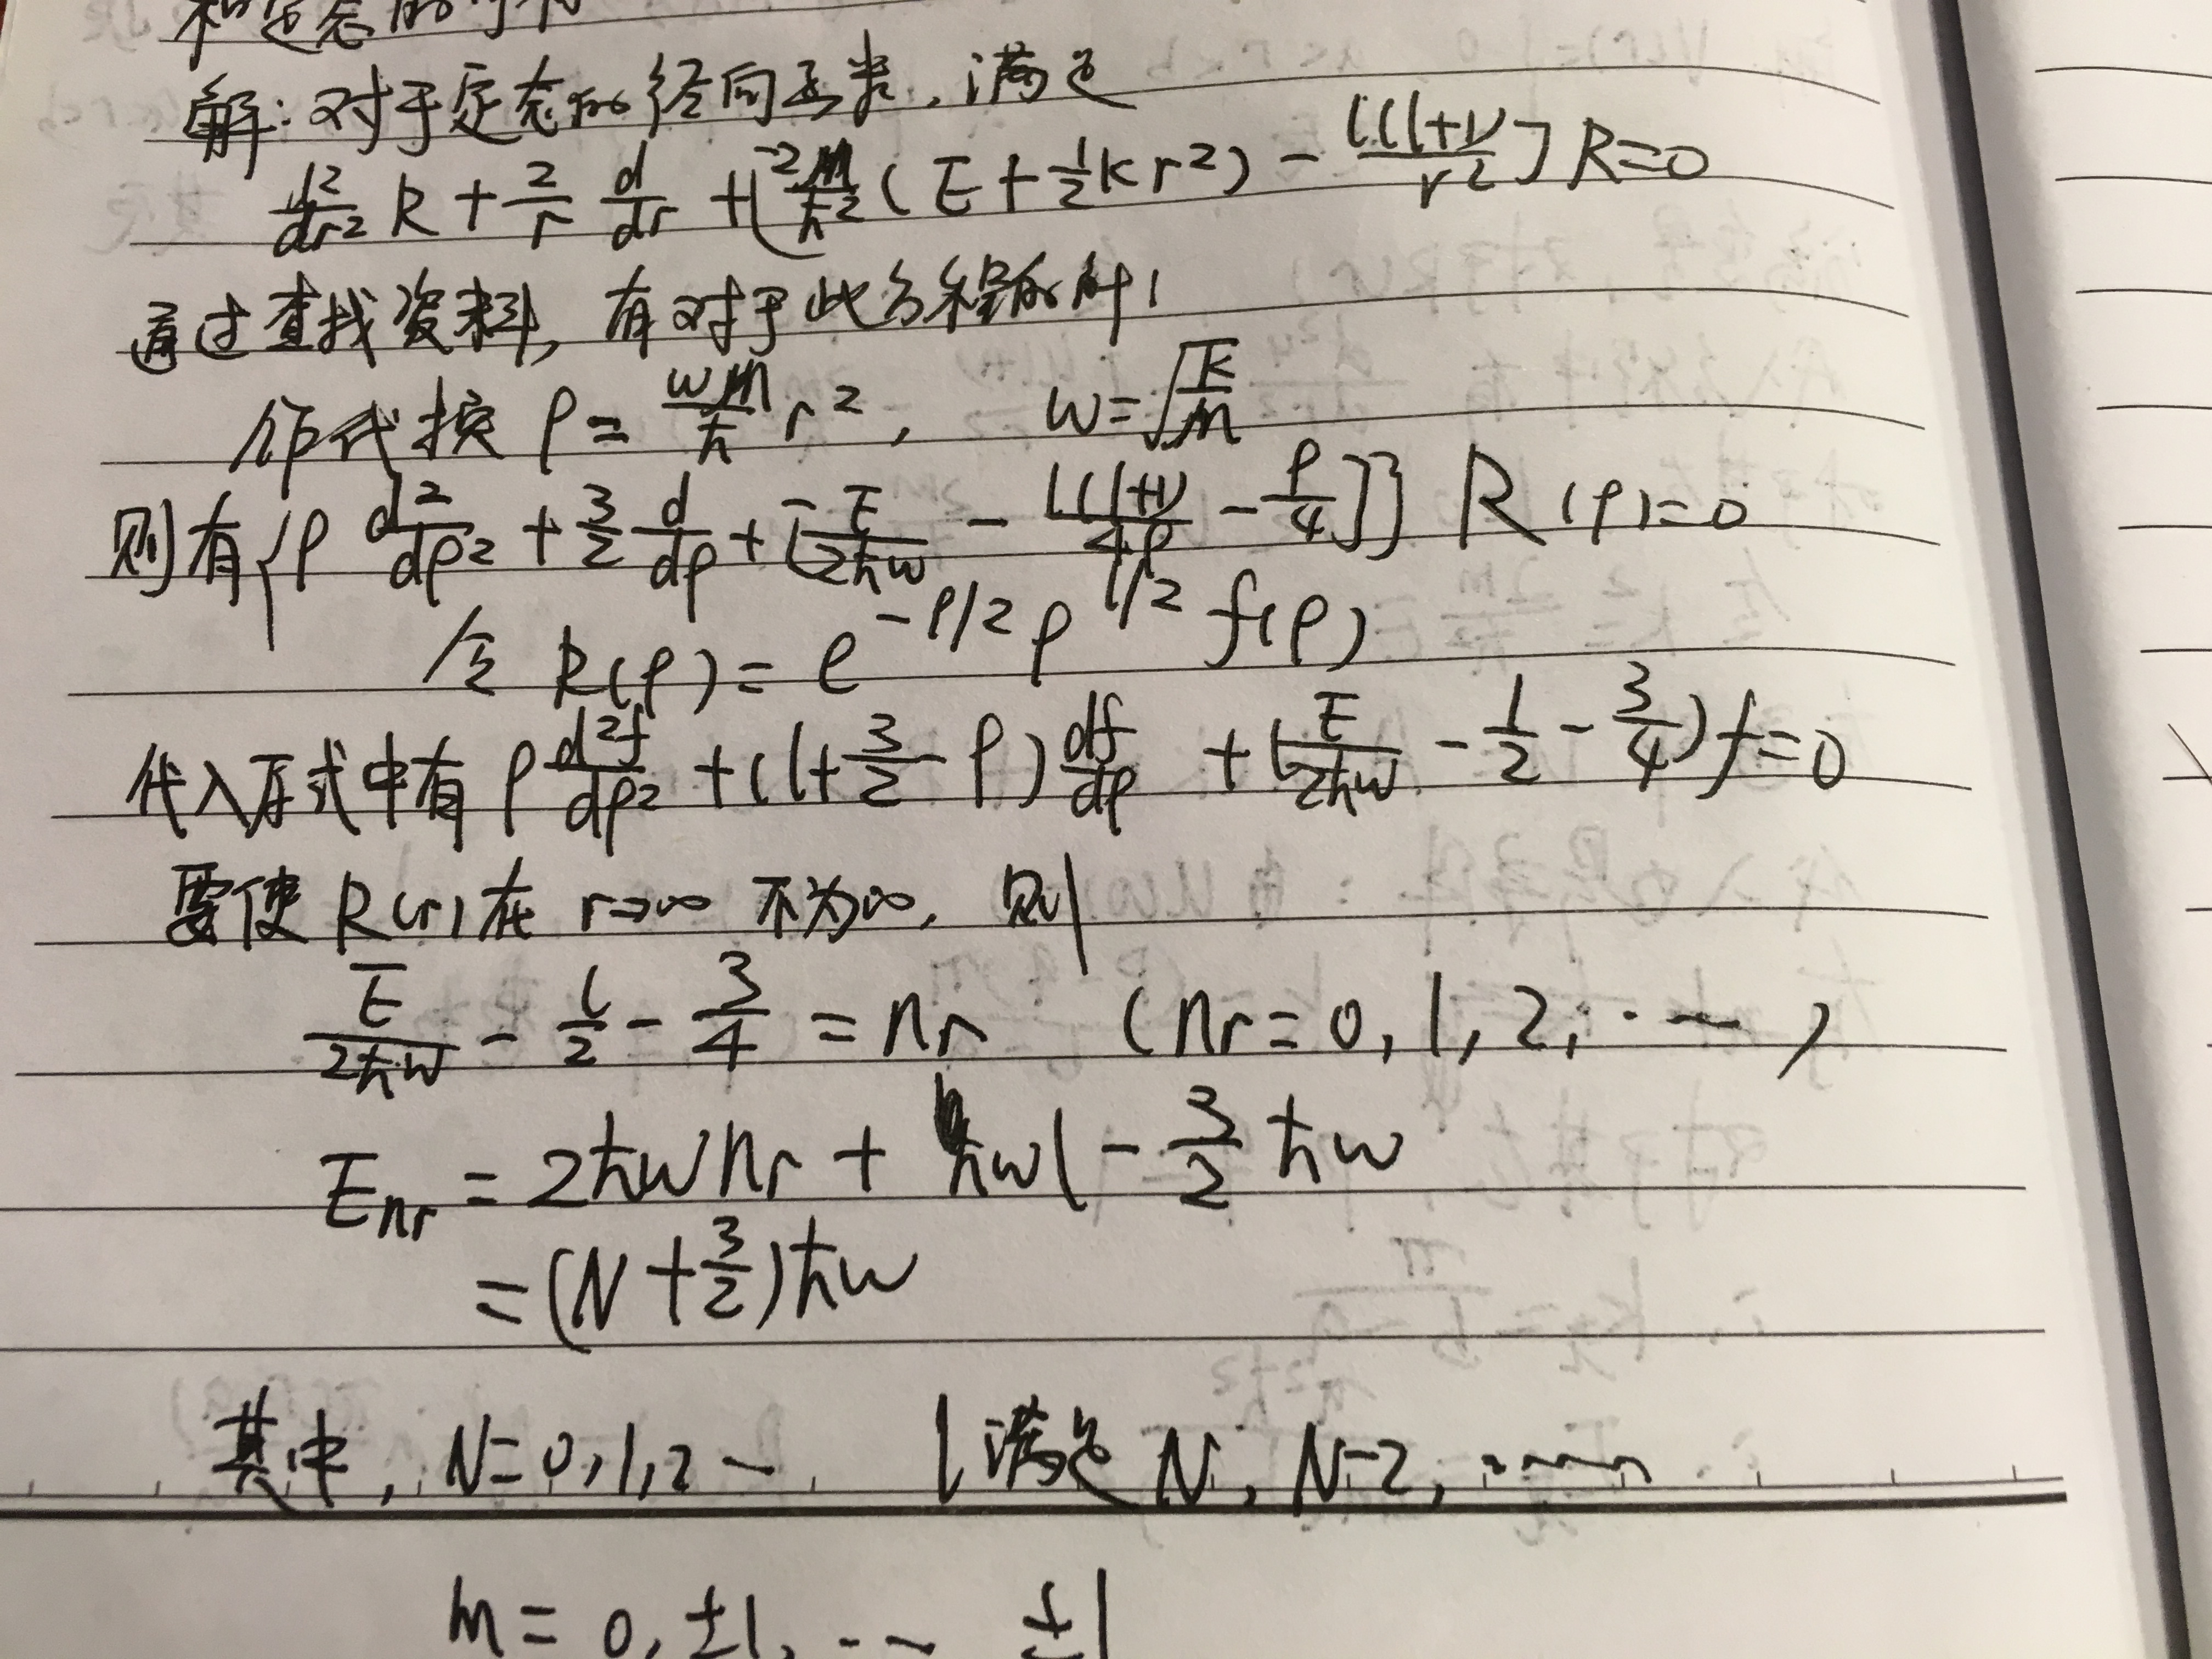 和定态的
解：对于定态的径向函数，满足
d²/dr² R + 2/r d/dr + [2m/ħ² (E + 1/2 kr²) - l(l+1)/r²] R = 0
通过查找资料，有对于此方程的解
作代换 ρ = ωm/ħ r², ω = √(k/m)
则有 {ρ d²/dρ² + 3/2 d/dρ + [E/2ħω - l(l+1)/4ρ - ρ/4]} R(ρ) = 0
令 R(ρ) = e^(-ρ/2) ρ^(l/2) f(ρ)
代入原式中有 ρ d²f/dρ² + (l + 3/2 - ρ) df/dρ + (E/2ħω - l/2 - 3/4) f = 0
要使 R(r) 在 r→∞ 不为∞，则
E/2ħω - l/2 - 3/4 = nr (nr = 0, 1, 2, ……)
Enr = 2ħω nr + ħω l - 3/2 ħω
= (N + 3/2) ħω
其中，N = 0, 1, 2 … l 满足 N, N-2, ……
m = 0, ±1, …… ±l